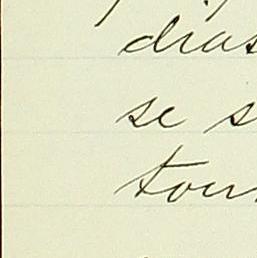 dias
se s
tour